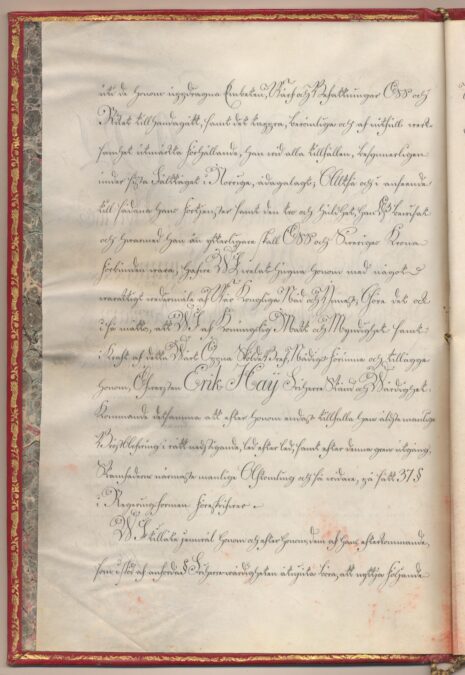 uti de honom uppdragna Embeten, Wärf och Befattningar Oss och
Riket tillhandagått, samt det tappra, berömliga och af nitfull verk-
samhet utmärkta förhållande, han vid alla tillfällen, besynnerligen
under sista Fälttåget i Norrige, ådagalagt; Alltså och i anseende
till sådane hans förtjenster samt den tro och huldhet, han Oss bewisat
och hwarmed han än ytterligare skall Oss och Sweriges Krona
förbunden wara, hafwe Wi welat hugna honom med något
waraktigt wedermäle af Wår Kongliga Nåd och Ynnest; Göre det ock
i så matto, att Wi af Konungslig Makt och Myndighet samt
i kraft af detta Wårt Öppna Sköldebref, Nådigst förunne och tillägge
honom, Öfwersten Erik Hay Friherre Stånd och Wärdighet
kommande detsamma att efter honom endast tillfalla hans äldste manlige
Bröstarfwinge i rätt nedstigande, led efter led, samt efter dennes grens utgång,
Stamfadrens närmaste manlige Afkomling och så widare, på sätt 37 §
i Regeringsformen föreskrifwer.
Wi tillåte jemwäl honom och efter honom, dem af hans efterkommande,
som i stöd af anförda § Friherre-wärdigheten åtnjuta böra, att nyttja följande